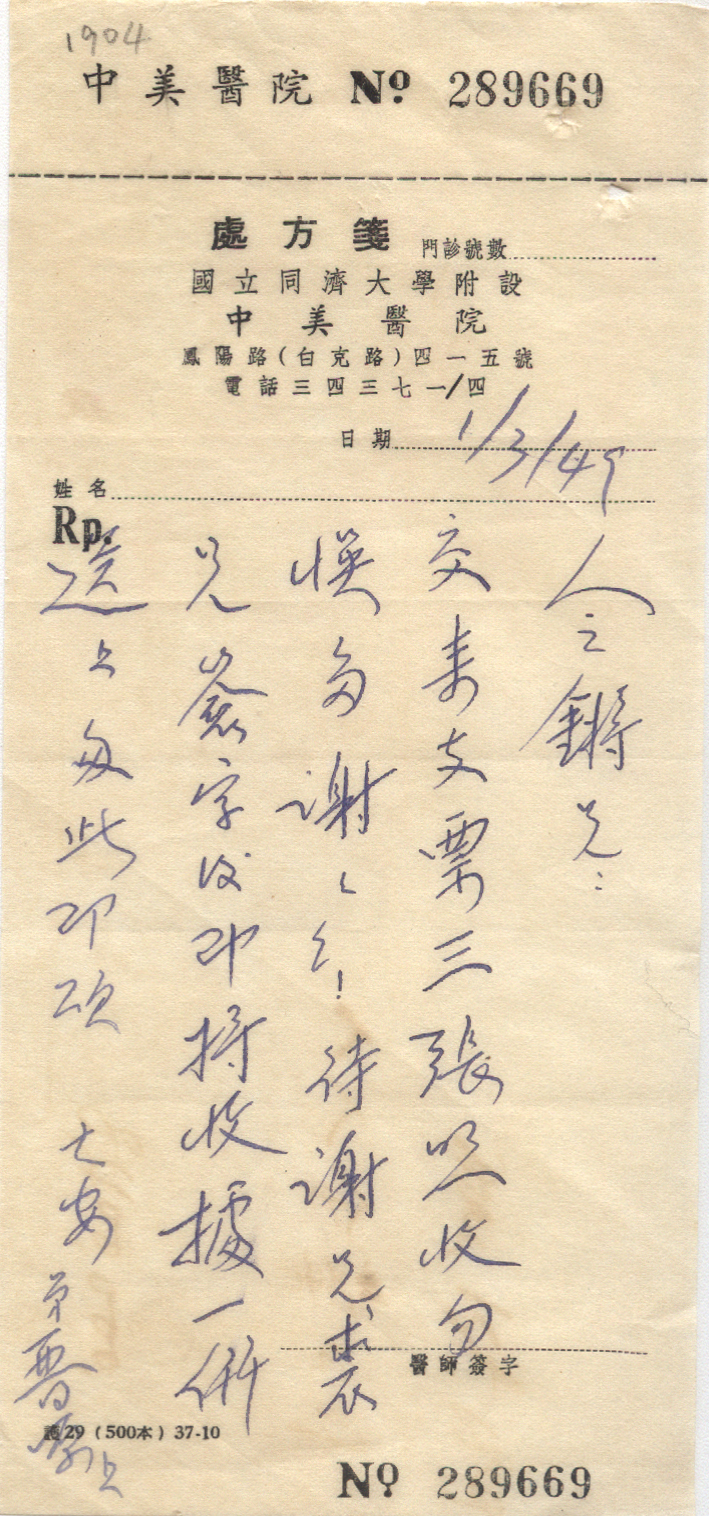 1904
中美醫院 No 289669
處方箋 門診號數
國立同濟大學附設
中美醫院
鳳陽路(白克路)四一五號
電話三四三七一/四
日期 1/3/49
姓名
Rp.
鏘兄:
交來支票三張照收勿
悞多謝々々!待謝兄裘
兄簽字後即將收據一併
上匆此即頌 安 弟 上
醫師簽字
護29(500本)37-10
No 289669